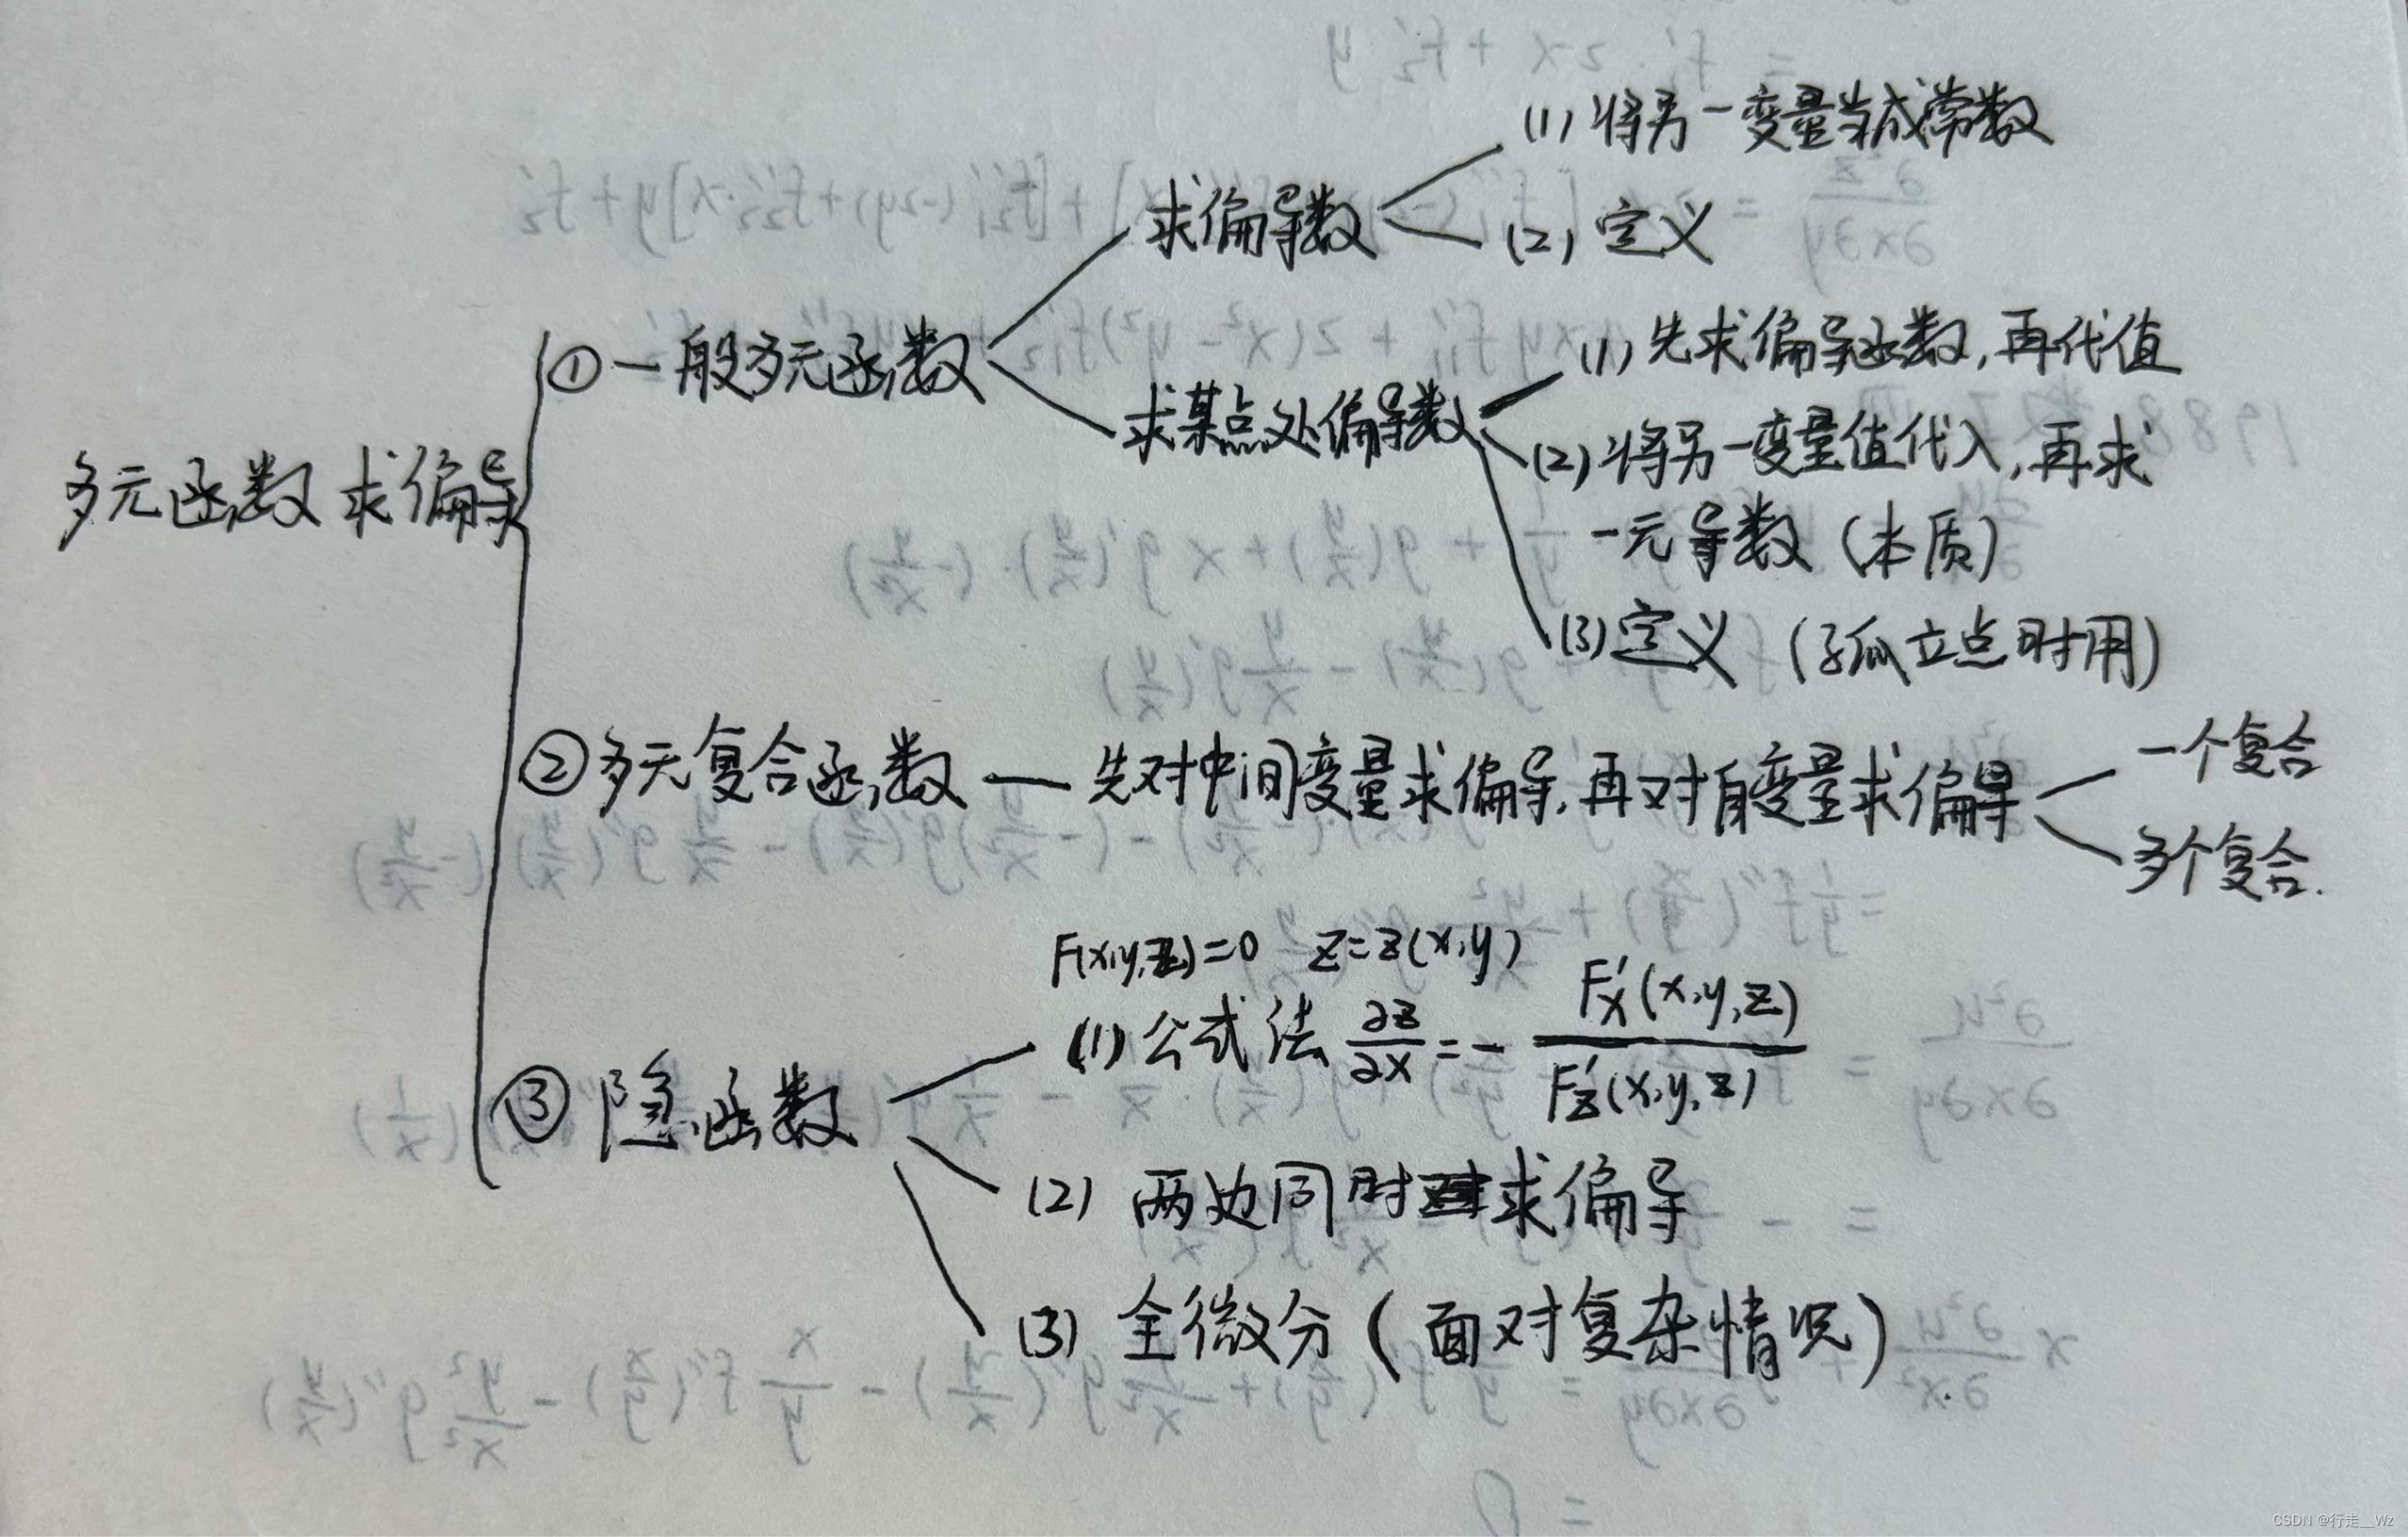 多元函数求偏导
①一般多元函数
求偏导数
(1)将另一变量当成常数
(2)定义
求某点处偏导数
(1)先求偏导函数,再代值
(2)将另一变量值代入,再求
一元导数(本质)
(3)定义(孤立点时用)
②多元复合函数—先对中间变量求偏导,再对自变量求偏导
一个复合
多个复合.
③隐函数
F(x,y,z)=0 z=z(x,y)
(1)公式法 ∂z/∂x=-F'x(x,y,z)/F'z(x,y,z)
(2)两边同时求偏导
(3)全微分(面对复杂情况)
CSDN @行走__Wz